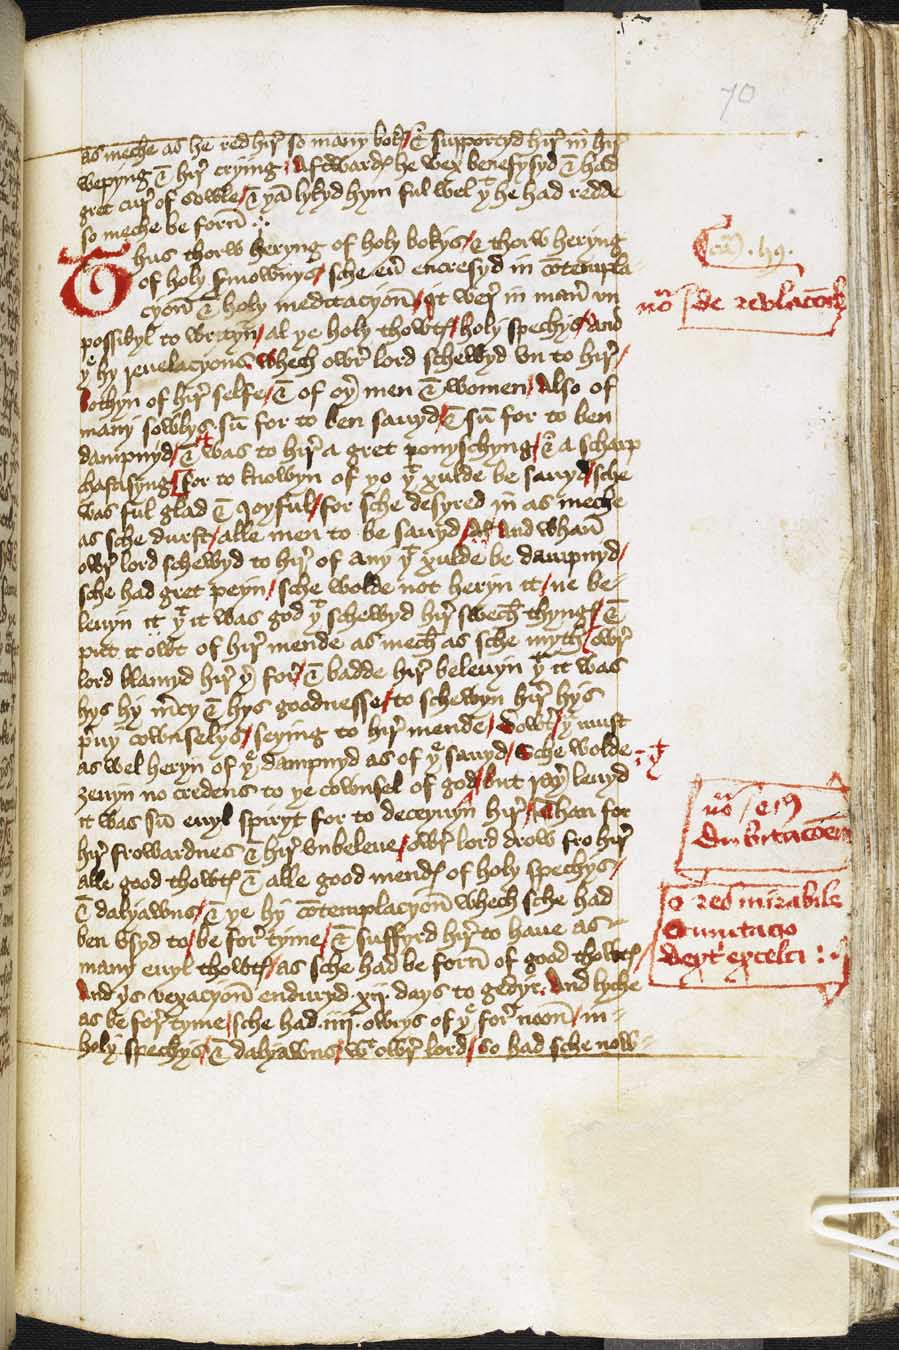 70
as meche as he red hir so many bokys / & supportyd hir in hir
wepyng & hir crying / Aftyrward he wex benefysyd & had
gret cur of sowle / & þan lykyd hym ful wel þt he had redde
so meche be forn
Thus thorw heryng of holy bokys / & thorw heryng
of holy sermownys / sche euyr encresyd in contempla-
cyon & holy meditacyon / it wer in maner vn
possibyl to writyn / al þe holy thowtys / holy spechys / and
þe hy reuelacyons whech owr lord schewyd vn to hir /
bothyn of hir selfe / & of oþer men & women / Also of
many sowlys sum for to ben sauyd / & sum for to ben
dampnyd / & was to hir a gret ponyschyng / & a scharp
chastisyng for to knowyn of þo þt xulde be sauyd / sche
was ful glad & joyful / for sche desyred in as meche
as sche durst / alle men to be sauyd / And whan
owr lord schewyd to hir of any þt xulde be dampnyd /
sche had gret peyn / sche wolde not heryn it / ne be-
leuyn it þt it was god þt schewyd hir swech thyngys / &
put it owt of hir mende as mech as sche myth / owr
lord blamyd hir þerfor / & badde hir beleuyn þt it was
hys hy mercy & hys goodnesse / to schewyn hir hys
preuy cownselys / seying to hir mende / Dowtyr þu must
as wel heryn of þe dampnyd as of þe sauyd / Sche wolde
ȝeuyn no credens to þe cownsel of god / but raþar leuyd
it was sum euyl spiryt for to deceyuyn hir / Than for
hir frowardnes & hir vnbeleue / owr lord drow fro hir
alle good thowtys & alle good mendys of holy spechys /
& dalyawns / & þe hy contemplacyon whech sche had
ben vsyd to / be for tyme / & suffyrd hir to haue as
many euyl thowtys / as sche had be forn of good thowtys /
And þis vexacyon enduryd xij days to gedyr / And lyche
as be for tyme / sche had iiij owrys of þe for noon / in
holy spechys / & dalyawns / wt owr lord / so had sche now
ca . 59 .
no de